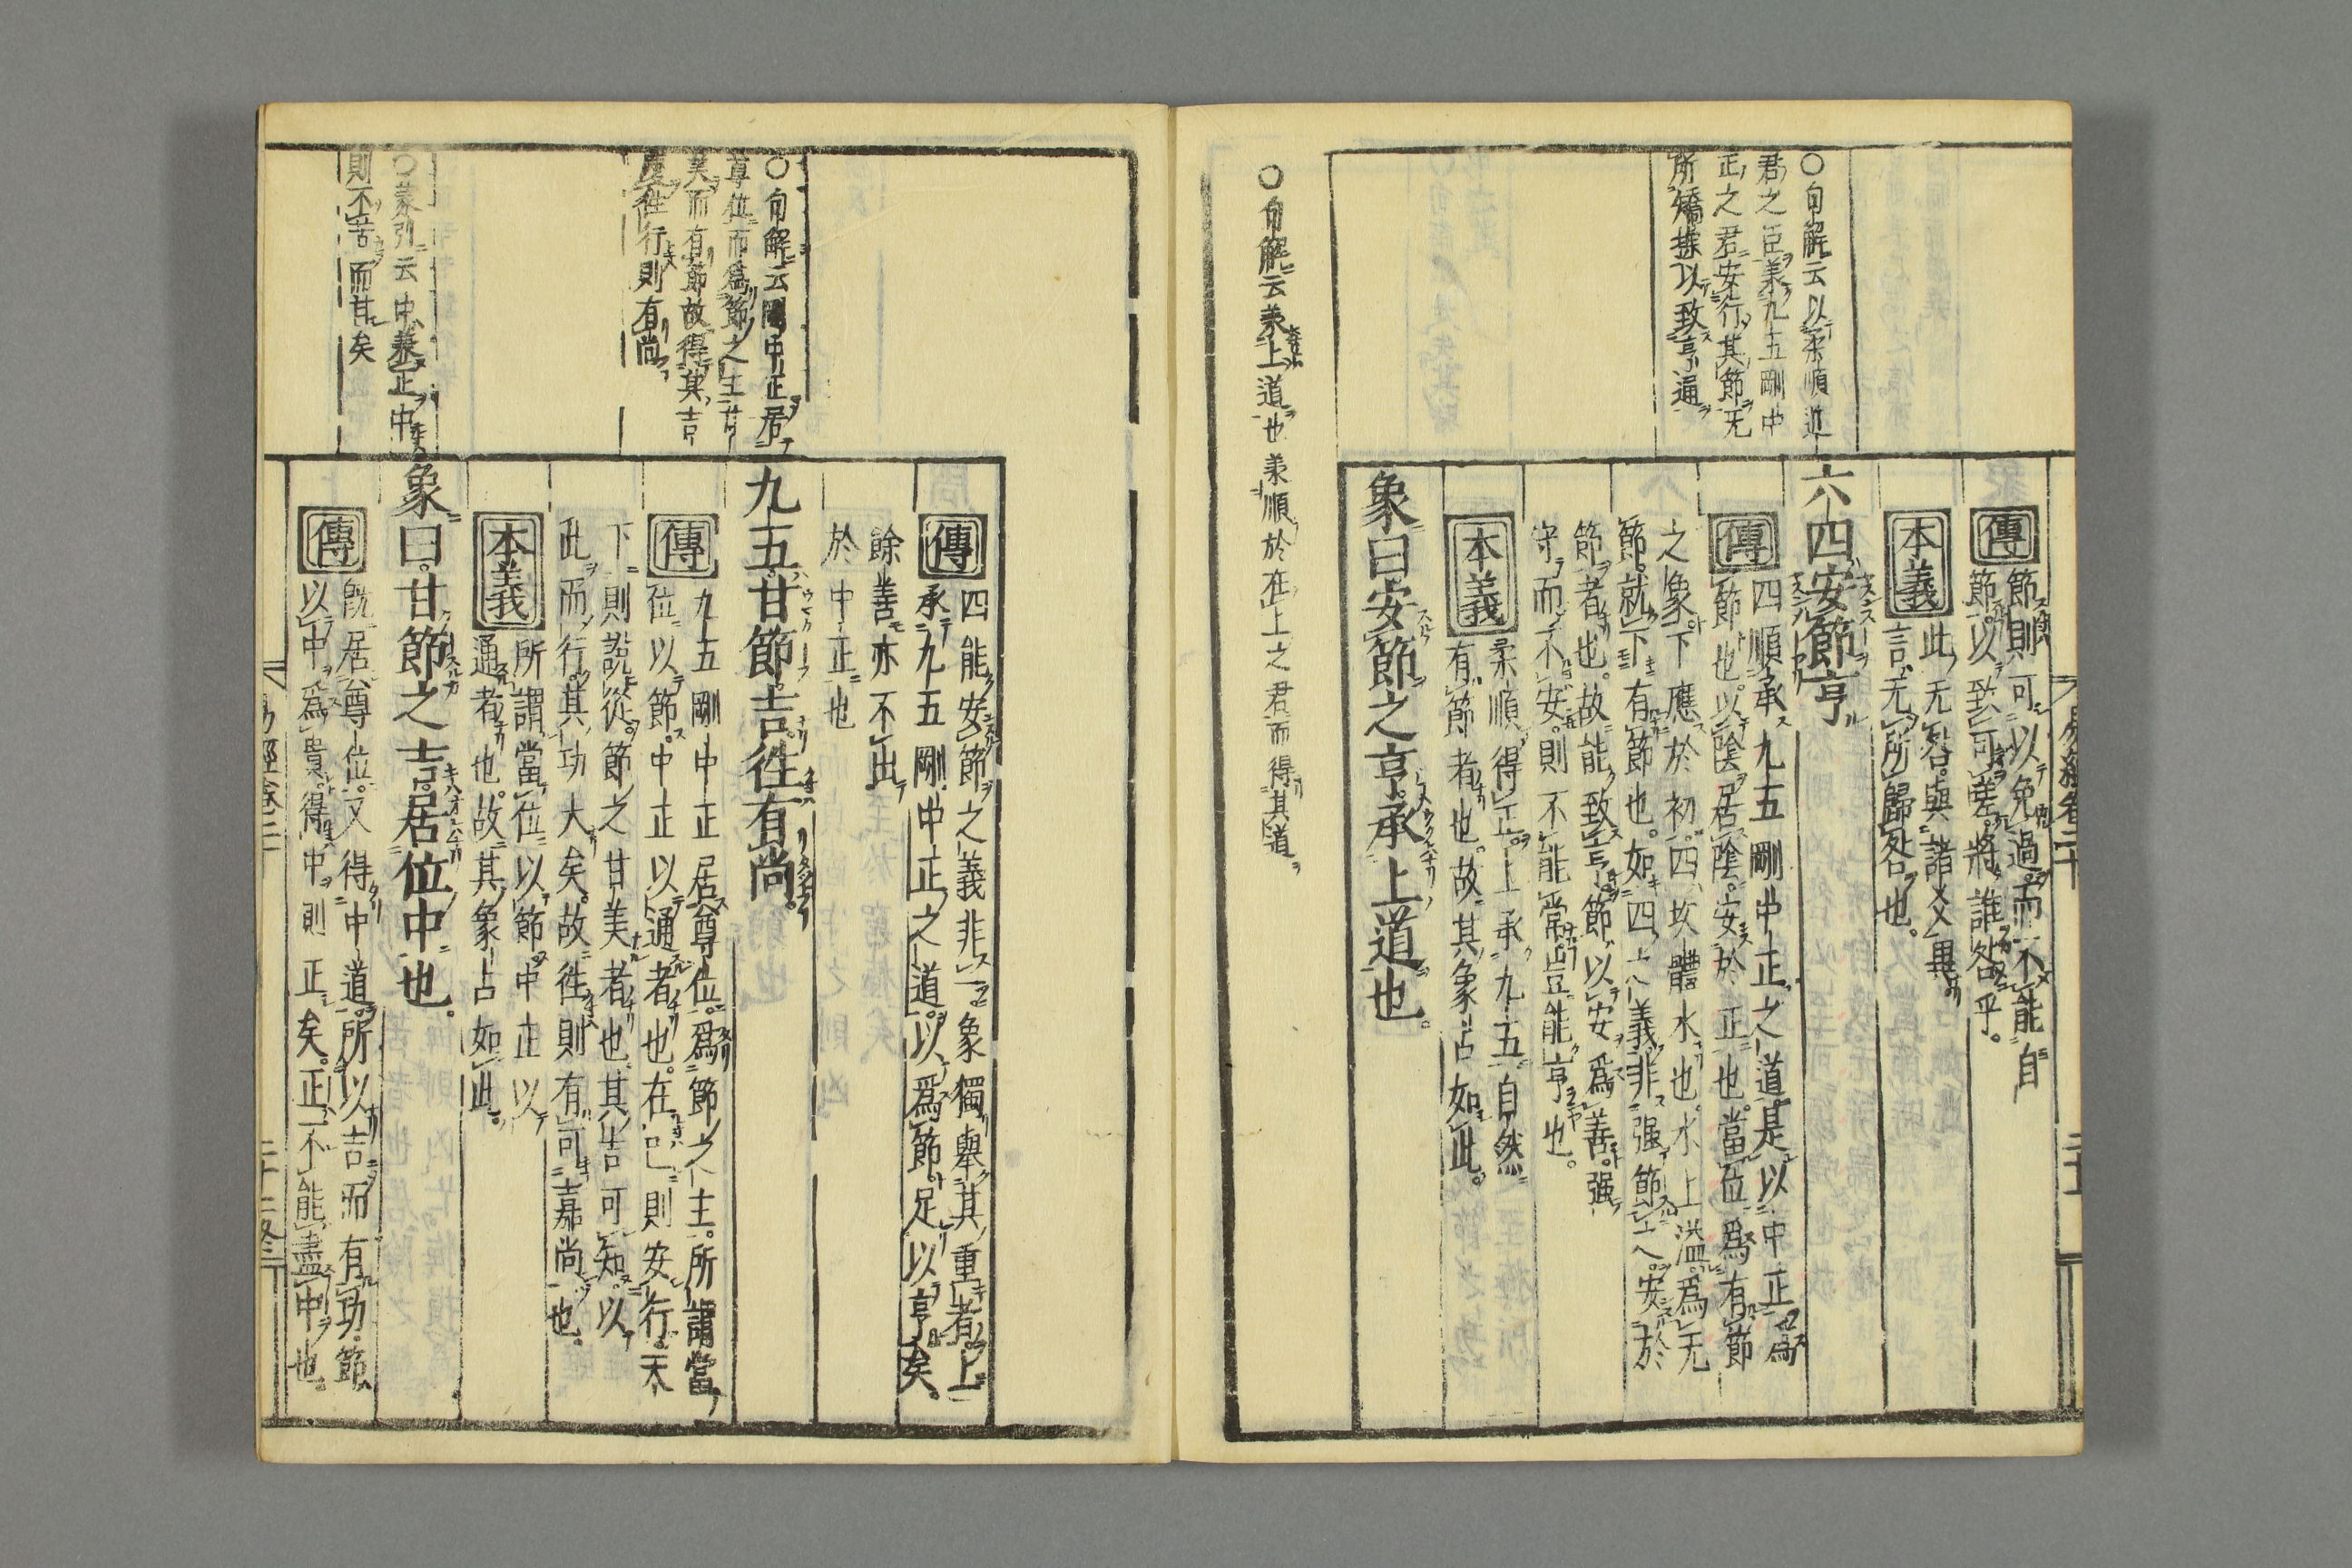 易經卷二十
傳
節則可以免過而不能自
節以致可嗟將誰咎乎
本義
此无咎與諸爻異
言无所歸咎也
六四安節亨
傳
四順承九五剛中正之道是以中正爲
節也以陰居陰安於正也當位爲有節
之象下應於初四坎體水也水上溢爲无
節就下有節也如四之義非强節之安於
節者也故能致亨節以安爲善强
守而不安則不能常豈能亨也
本義
柔順得正上承九五自然
有節者也故其象占如此
象曰安節之亨承上道也
〇句解云以柔順近
君之臣承九五剛中
正之君安行其節无
所矯揉以致亨通
〇句解云承上道也承順於在上之君而得其道
傳
四能安節之義非一象獨舉其重者上
承九五剛中正之道以爲節足以亨矣
餘善亦不出
於中正也
九五甘節吉往有尚
傳
九五剛中正居尊位爲節之主所謂當
位以節中正以通者也在己則安行天
下則說從節之甘美者也其吉可知以
此而行其功大矣故往則有可嘉尚也
本義
所謂當位以節中正以
通者也故其象占如此
象曰甘節之吉居位中也
傳
既居尊位又得中道所以吉而有功節
以中爲貴得中則正矣正不能盡中也
〇句解云剛中正居
尊位而爲節之主甘
美而有節故得其吉
度往行則有尚
〇蒙引云中兼正中
則不苦而甘矣